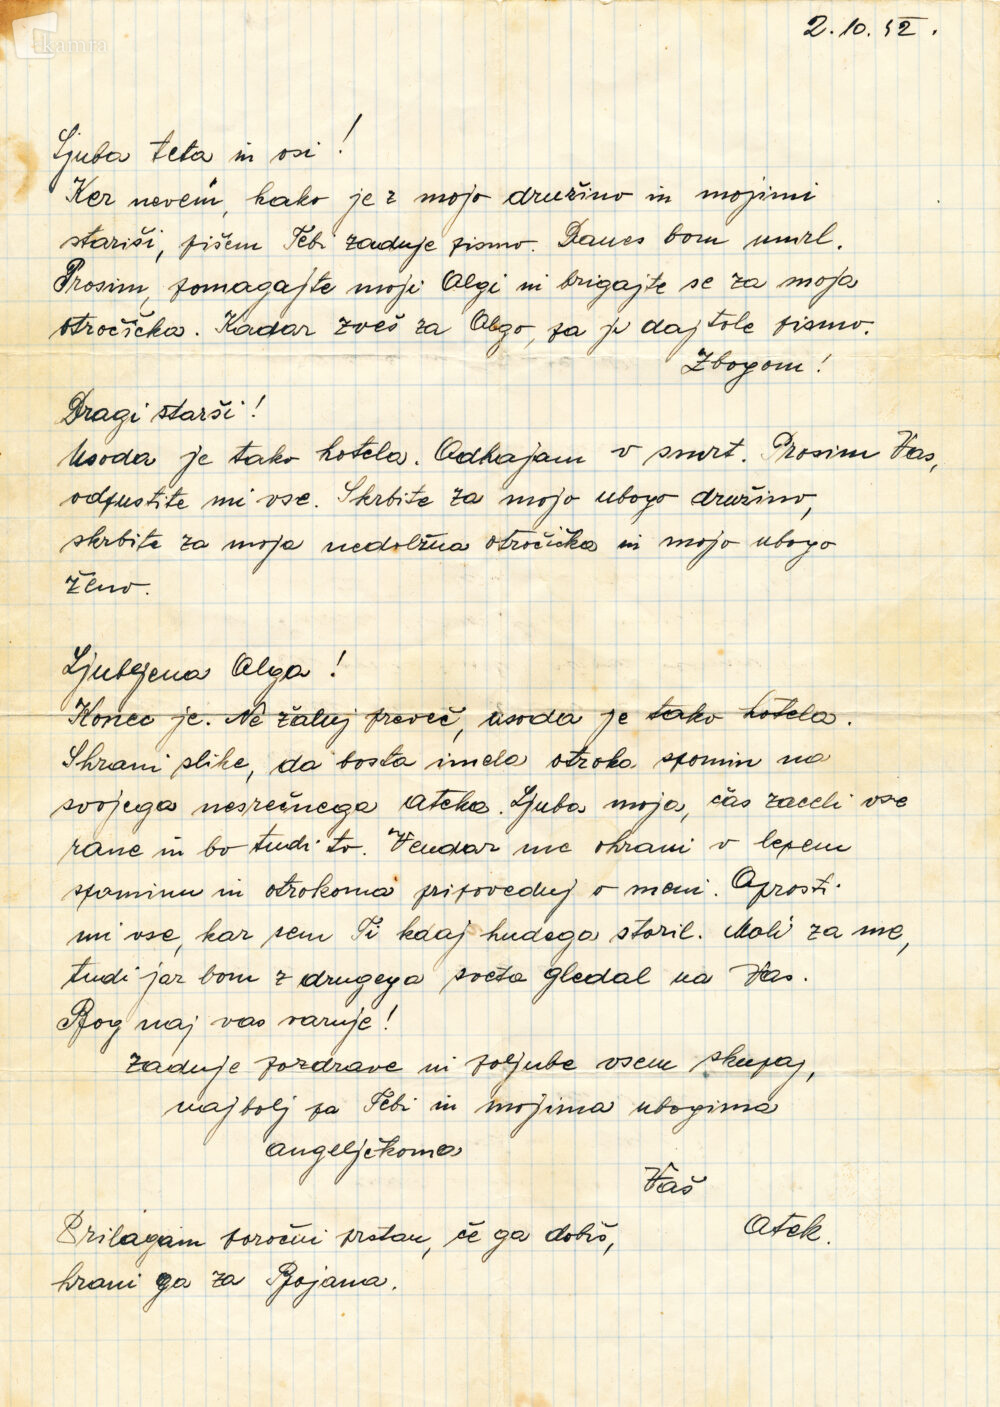 kamra
2.10.42.
Ljuba teta in vsi!
Ker nevem, kako je z mojo družino in mojimi
stariši, pišem Tebi zadnje pismo. Danes bom umrl.
Prosim, pomagajte moji Olgi in brigajte se za moja
otročička. Kadar zveš za Olgo, pa ji daj tole pismo.
Zbogom!
Dragi starši!
Usoda je tako hotela. Odhajam v smrt. Prosim Vas,
odpustite mi vse. Skrbite za mojo ubogo družino,
skrbite za moja nedolžna otročička in mojo ubogo
ženo.
Ljubljena Olga!
Konec je. Ne žaluj preveč, usoda je tako hotela.
Shrani slike, da bosta imela otroka spomin na
svojega nesrečnega ateka. Ljuba moja, čas zaceli vse
rane in bo tudi to. Vendar me ohrani v lepem
spominu in otrokoma pripoveduj o meni. Oprosti
mi vse, kar sem Ti kdaj hudega storil. Moli za me,
tudi jaz bom z drugega sveta gledal na Vas.
Bog naj vas varuje!
Zadnje pozdrave in poljube vsem skupaj,
najbolj pa Tebi in mojima ubogima
angeljčkoma
Vaš
Atek.
Prilagam poročni prstan, če ga dobiš,
hrani ga za Bojana.